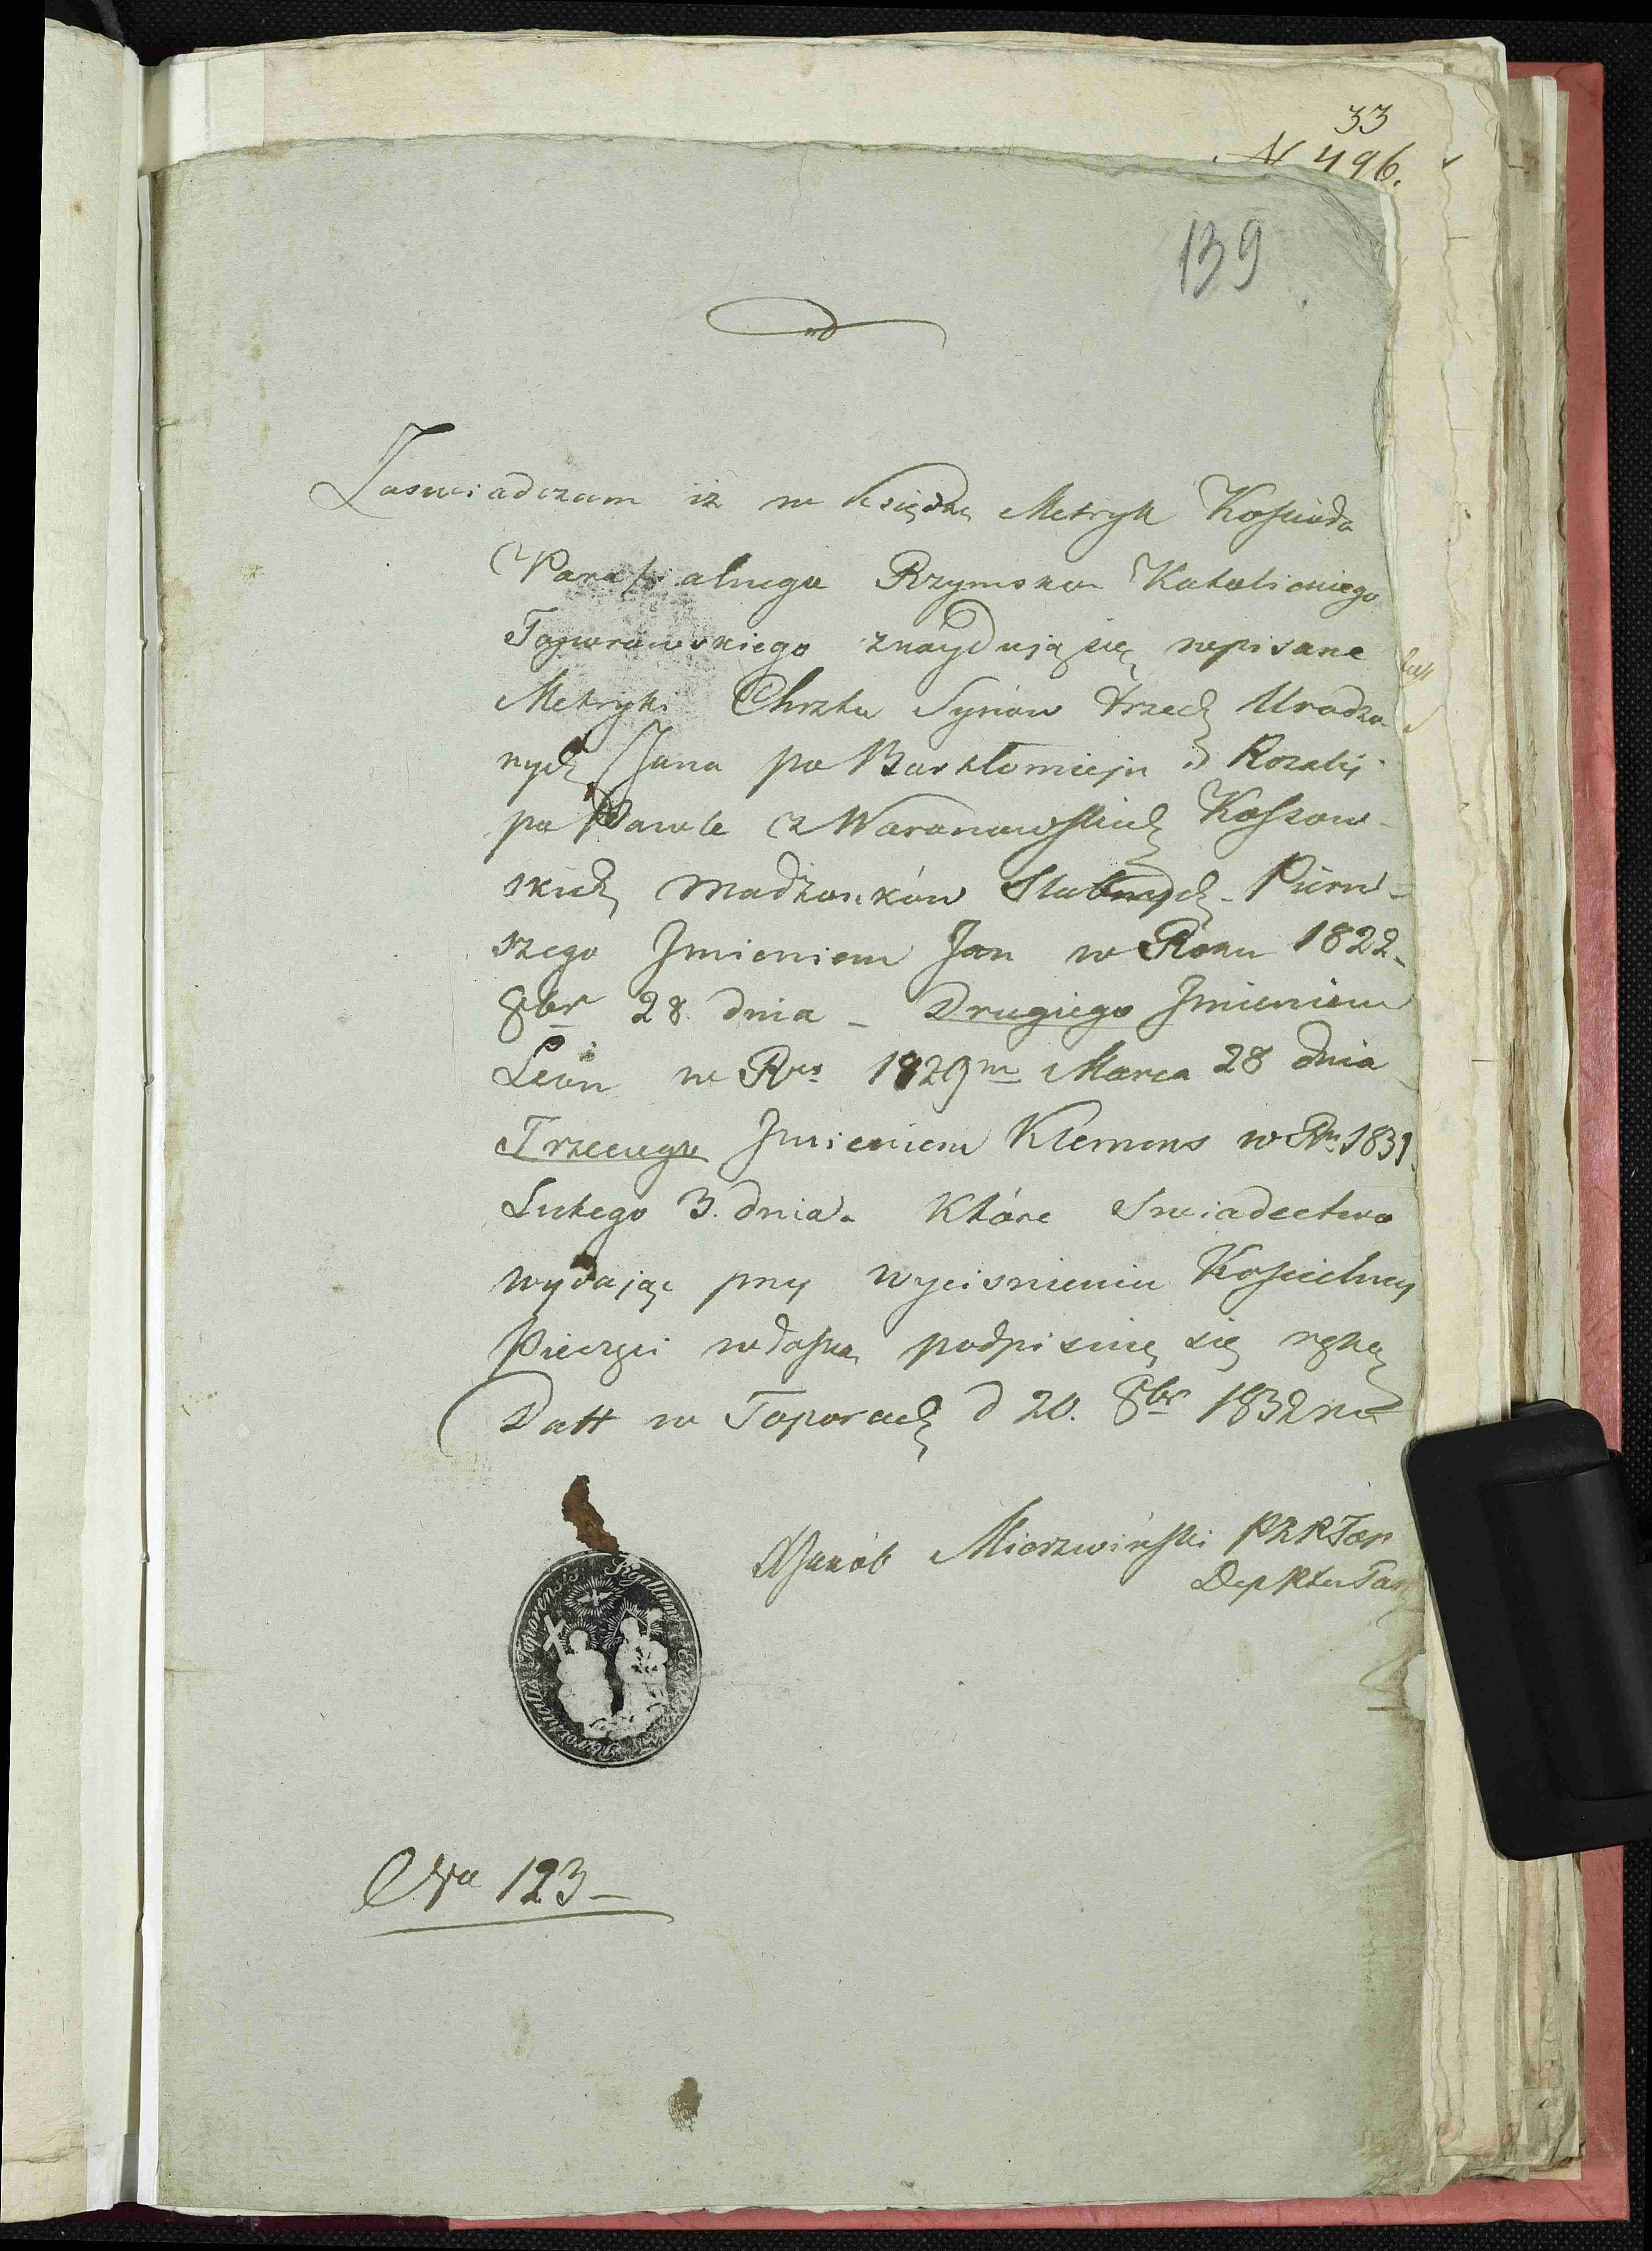 33
N 496.
139
Zaswiadczam iż w Księdze Metryk Kościoła
Parafialnego Rzymsko Katolickiego
Toporowskiego znaydują się wpisane
Metryki Chrztu Synów trzech Urodzo-
nych Jana po Bartłomieju i Rozalij
po Pawle z Waranowskich Kossow-
skich Małżonków Slubnych - Pierw-
szego Jmieniem Jan w Roku 1822
8br 28 dnia - Drugiego Jmieniem
Leon w Rs 1829m Marca 28 dnia
Trzeciego Jmieniem Klemens w Rs 1831
Lutego 3. dnia. Które Swiadectwo
wydając przy wycisnieniu Kościelney
Pieczęci własną podpisuię się ręką
Datt w Toporach d 20. 8br 1832 ro
X Jakób Mierzwiński PRKTop
Sigillum Toporensis
123 -